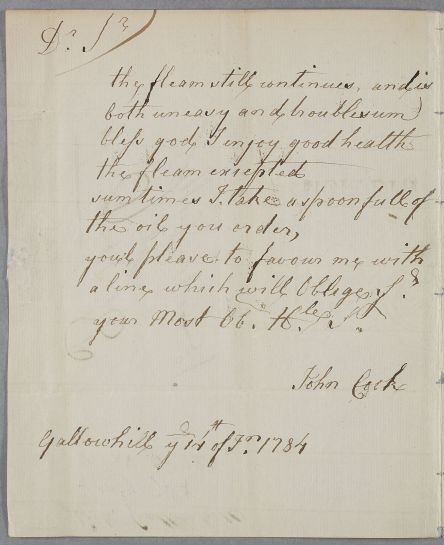 Dr Sr
the fleam still continues, and is
both uneasy and troublesum
bless god I enjoy good health
the fleam excepted
sumtimes I take a spoonfull of
the oil you order,
youl please to favour me with
a line which will Oblige Sr
your Most Ob. Hle St
John Cock
Gallowhill ye 14th of Jnr 1784